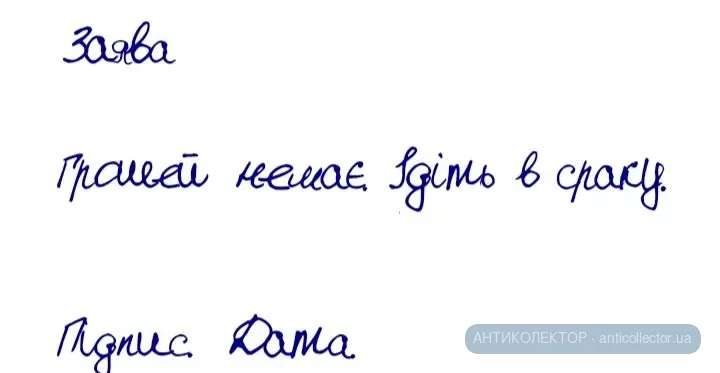 Заява
Грошей немає. Ідіть в сраку.
Підпис. Дата.
АНТИКОЛЕКТОР - anticollector.ua